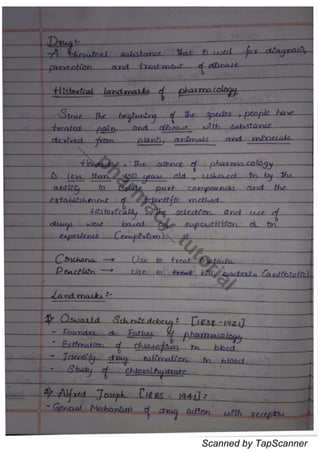 Drug :-
A chemical substance that is used for diagnosis,
prevention and treatment of disease
Historical landmarks of pharmacology
Since the beginning of the species, people have
treated pain and disease with substance
derived from plants, animals and minerals
However, the science of pharmacology
is less than 150 years old, ushered in by the
ability to isolate pure compounds and the
establishment of scientific method.
Historically the selection and use of
drugs were based on superstition or on
experience (empiricism).
Cinchona → Use to treat malaria
Penicillin → Use to treat kill bacteria (antibiotic)
Landmarks :-
1) Oswald Schmiedeberg : [1838-1921]
- Founder or Father of pharmacology
- Estimation of chloroform in blood
- Identify drug estimation in blood
- Study of chloralhydrate
2) Alfred Joseph [1885 - 1941] :
- General Mechanism of drug action with receptor
pharmacy tutorial
Scanned by TapScanner